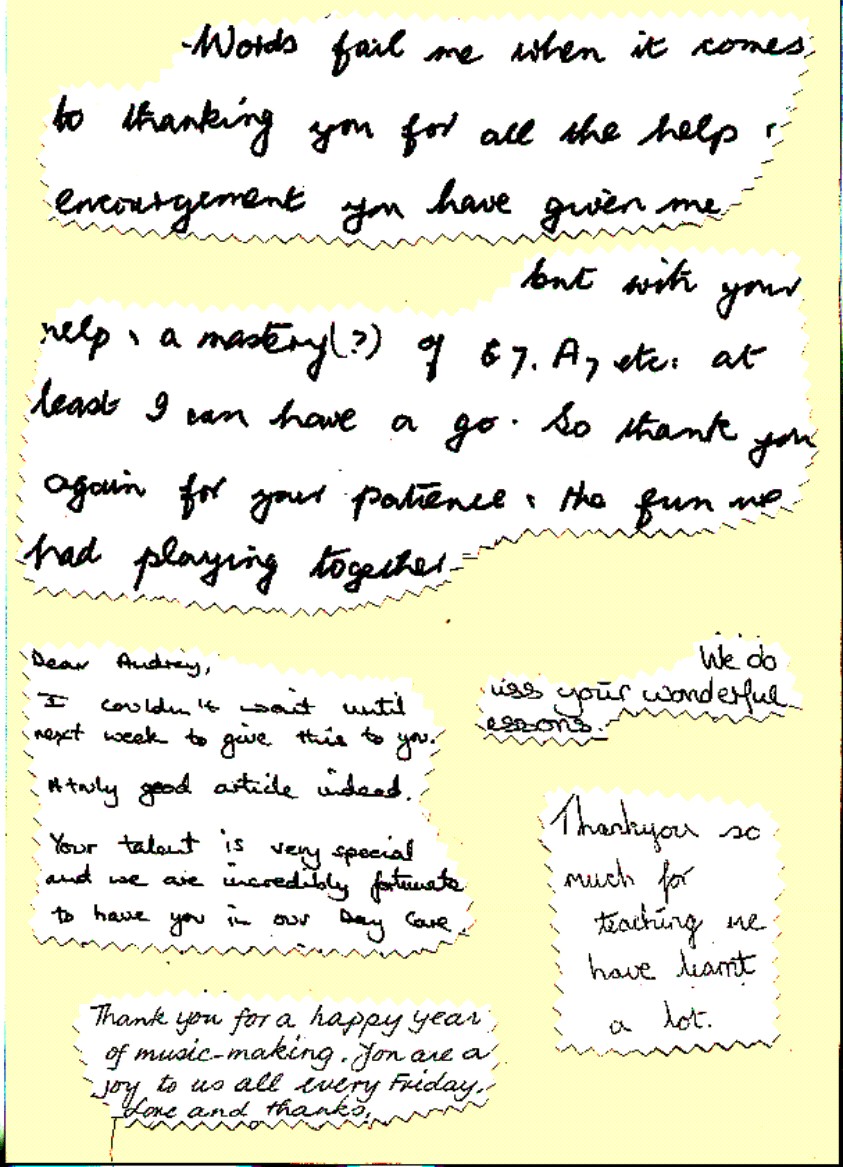 Words fail me when it comes
to thanking you for all the help &
encouragement you have given me
but with your
help & a mastery(?) of E7, A7 etc: at
least I can have a go. So thank you
again for your patience & the fun we
had playing together
Dear Audrey,
I couldn't wait until
next week to give this to you.
A truly good article indeed.
Your talent is very special
and we are incredibly fortunate
to have you in our Day Care.
We do
iss your wonderful
essons.
Thankyou so
much for
teaching me
have learnt
a lot.
Thank you for a happy year
of music-making. You are a
joy to us all every Friday.
Love and thanks,